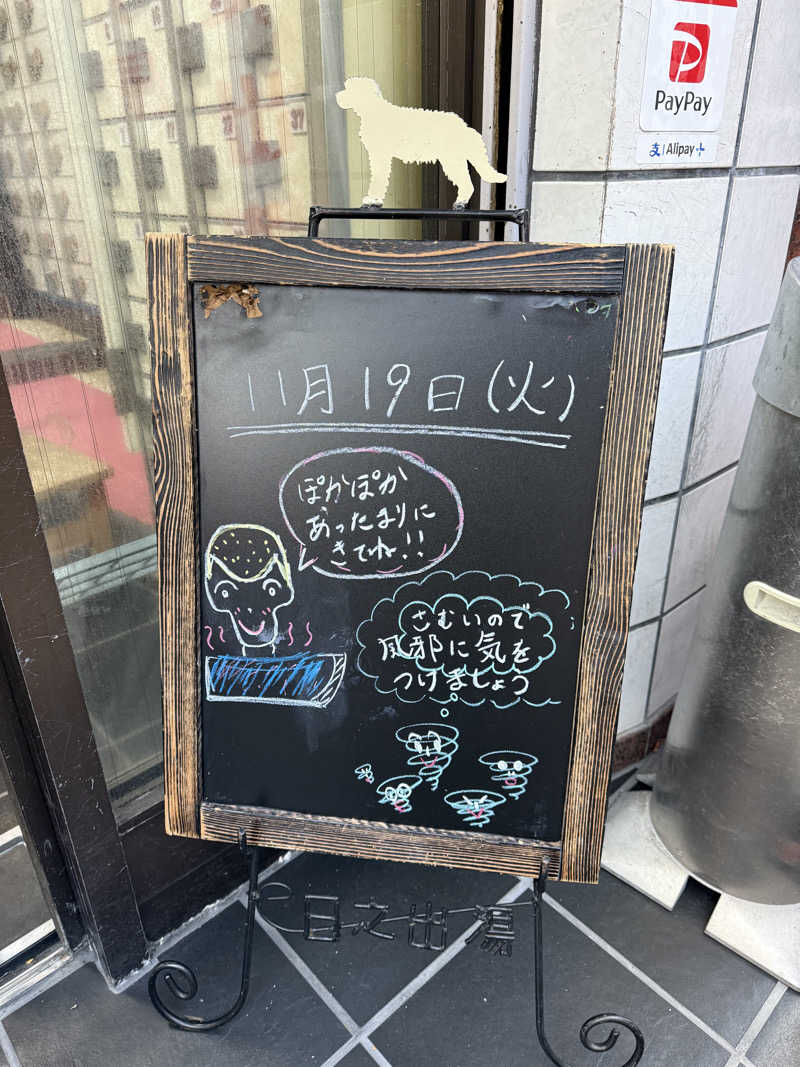 PayPay
支 | Alipay+
11月19日(火)
ぽかぽか
あったまりに
きてね!!
さむいので
風邪に気を
つけましょう
日之出湯